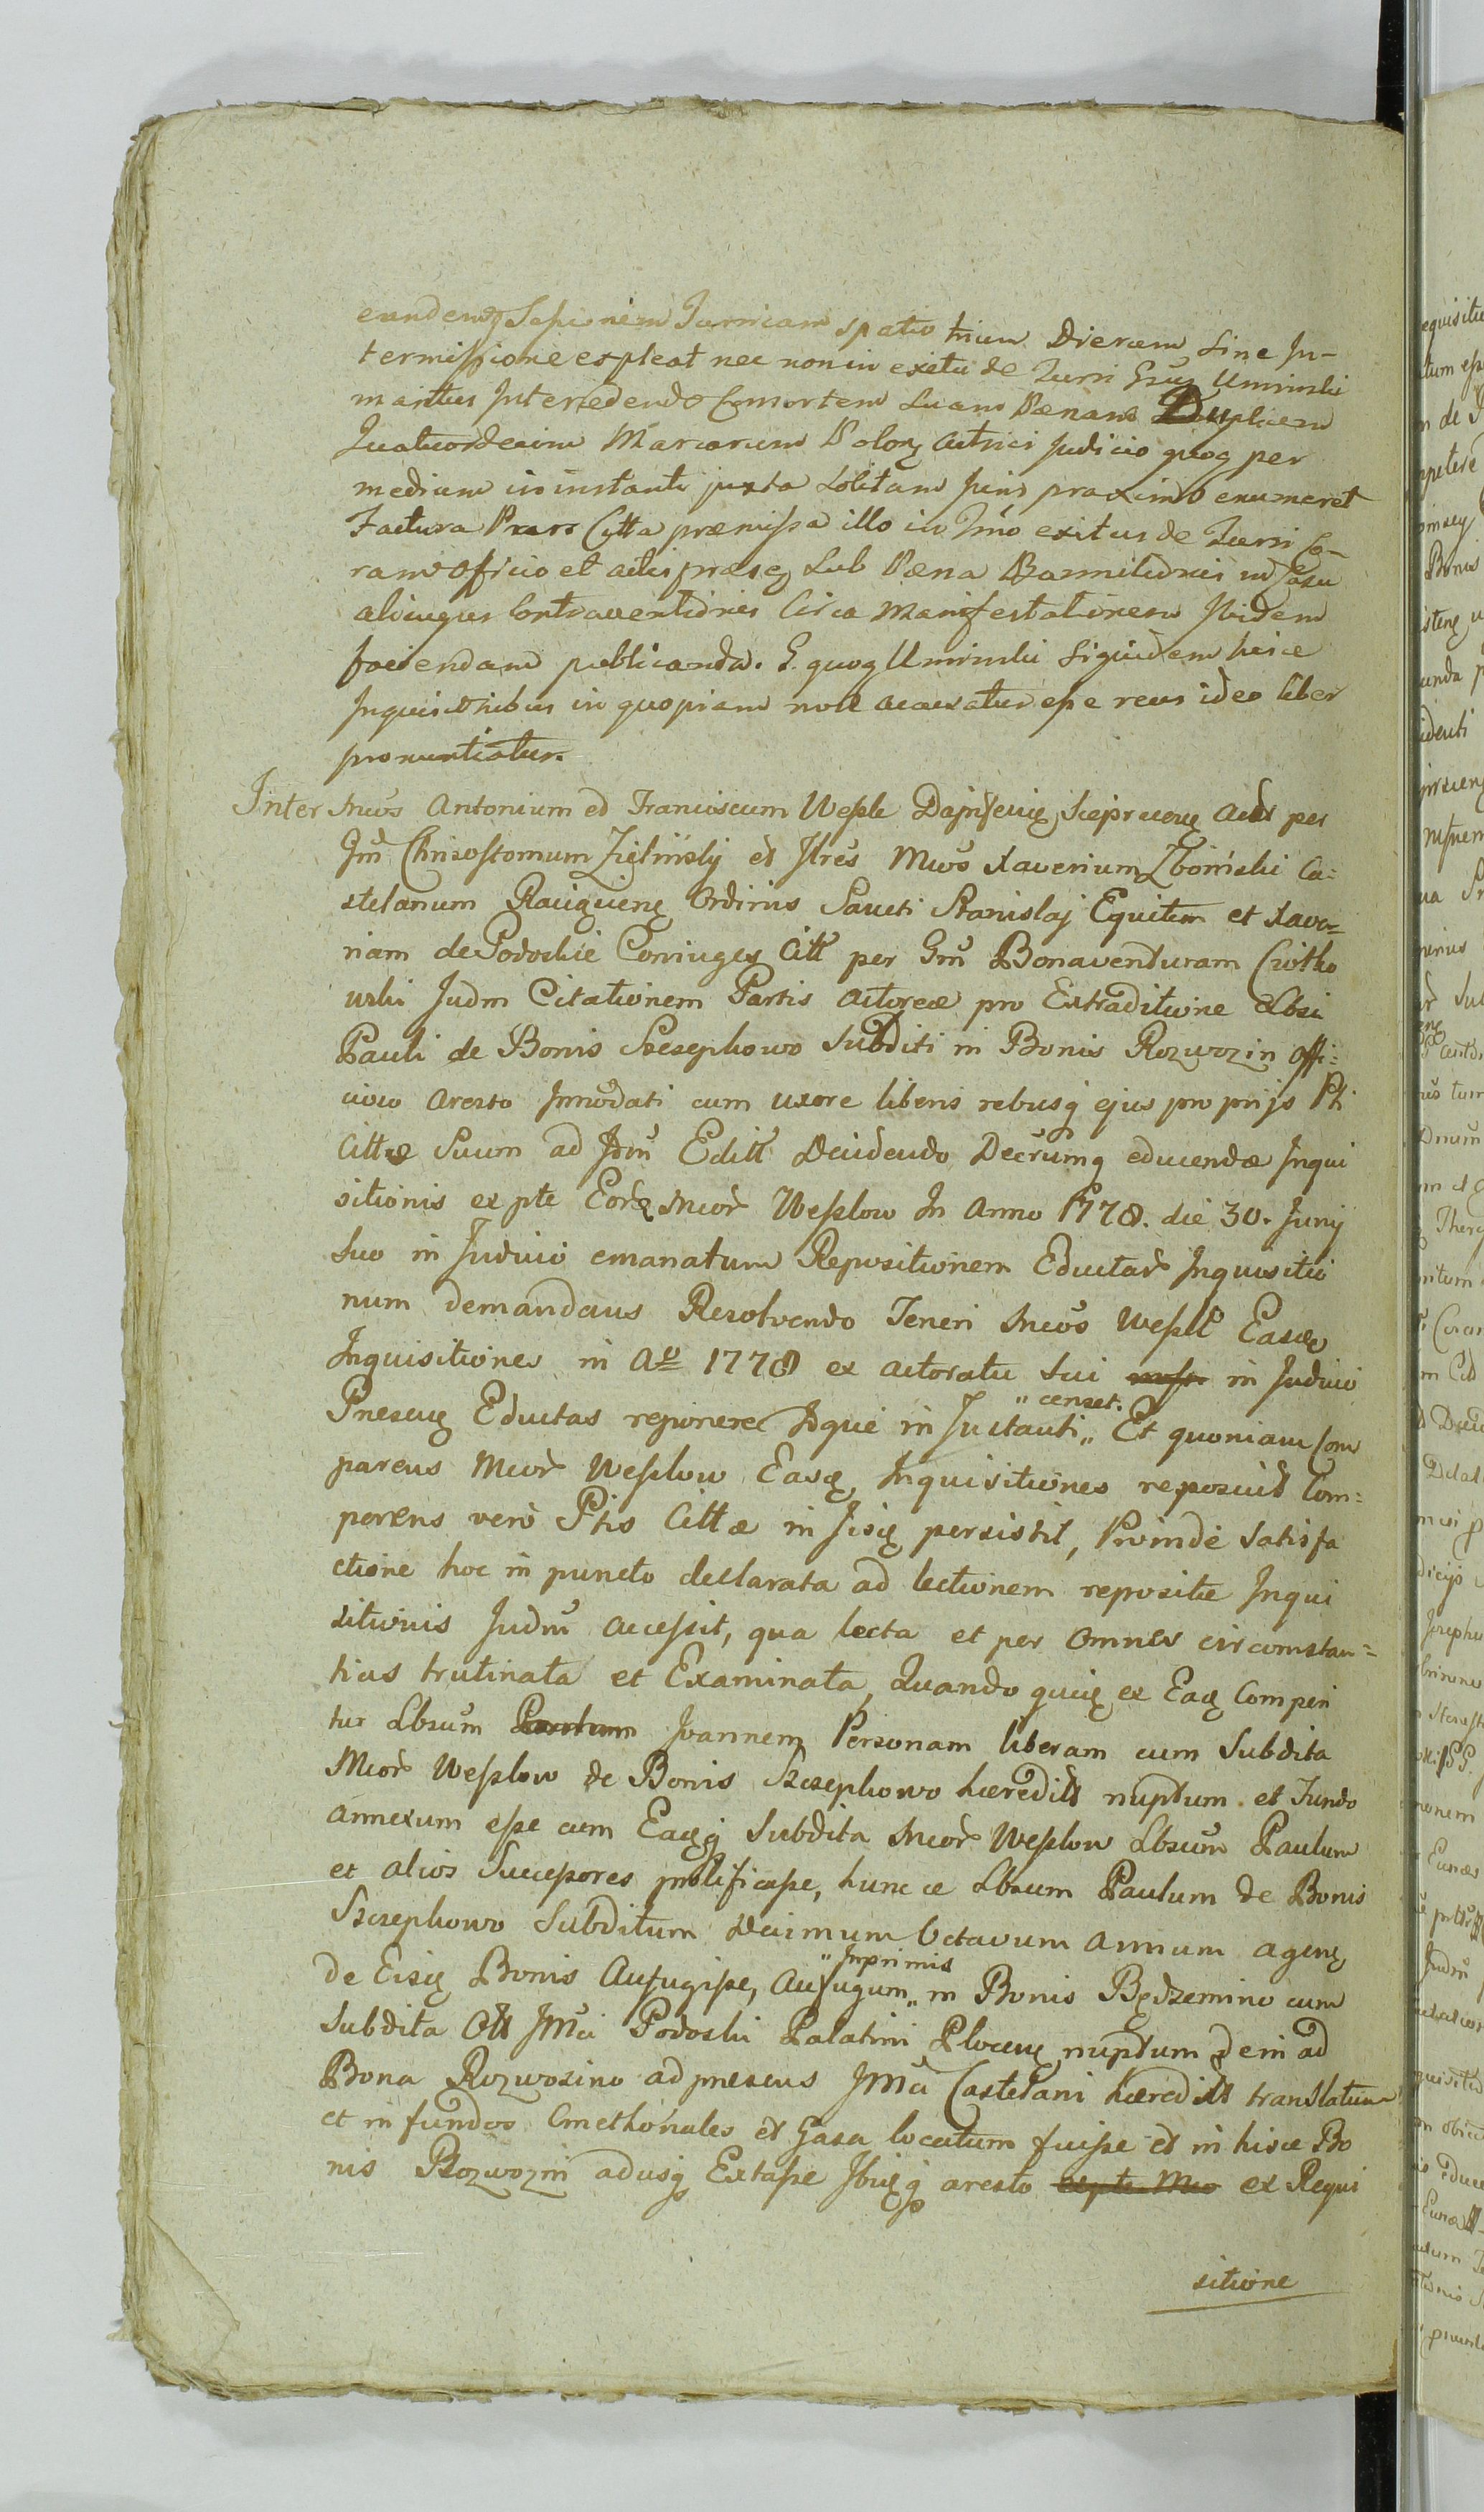 eandemq Sessionem Turricam spatio trium Dierum Sine In-
termissione expleat nec non in exitu de Turri Gsus Uminski
maritus Intercedendo Consortem Suam Pænam Duplicem
Quatuordecim Marcarum Polon Actrici Judicio quoq per
medium in instanti juxta Solitam proximo enumeret
Factura Pars Citta præmissa illo in exitus de Turri Co-
ram Officio et actis præseq Sub Pæna Bannitionis in Casu
alicujus Contraventionis Circa Manifestationem Ibidem
faciendam publicanda. G. quoq Uminski Siquidem hisce
Inquisitionibus in quopiam non accusatur esse reus ideo liber
pronuntiatur.
Inter Mcos Antonium et Franciscum Wessle per
Gm Chrisostomum Zielinskj et Illres Mcos Xaverium Zboinski Ca=
stelanum Raciązenę Ordinis Sancti Stanislaj Equitem et Xave=
riam de Podoskie Coniuges Citt per Gm Bonaventuram
Judm Citationem Partis Actoreæ pro Extraditione Lbsi
Pauli de Bonis Szczephowo Subditi in Bonis Rozwozin offi=
cioso Aresto Innodati cum uxore liberis rebusq ejus proprijs Pti
Cittæ Suum ad Editt Decidendo Decrumq educendæ Inqui
sitionis ex pte Eorę Mcor Wesslow In Anno 1778. die 30. Junij
Suo in Judicio emanatum Repositionem Eductar Inquisitio
num demandans Resolvendo Teneri Mcos Wessll Easdę
Inquisitiones in Ao 1778 ex actoratu Sui in Judicio
Præsenę Eductas reponere Idque in Instanti „ Et quoniam Com
„ censet.
parens Mcor Wesslow Easę Inquisitiones reposuit Com=
parens verò Ptis Cittæ in Jisę persistit, Proindè Satisfa
ctione hoc in puncto declarata ad lectionem repositæ Inqui
sitionis Judm accessit, qua lecta et per omnes circumstan=
tias trutinata et Examinata, Quando quię ex Eaę Comperi
tur Lbsum Joannem Personam liberam cum Subdita
Mcor Wesslow de Bonis Szczephowo hæreditt nuptum et Fundo
annexum esse cum Eaęq Subdita Mcor Wesslow Lbsum Paulum
et alios Successores prolificasse, hunce Lbsum Paulum de Bonis
Szczephowo Subditum Decimum Octavum annum agenę
de Eisę Bonis Aufugisse, Aufugum „ in Bonis Będzemino cum
„ Inprimis
Subdita Oll Jmci Podoski Palatini Plocenę nuptum dein ad
Bona Rozwozino ad præsens Jmci Castelani hæreditt translatum
et in fundos Cmethonales et Gasa locatum fuisse et in hisce Bo
nis Rozwozin adusq Extasse Ibięq aresto expte Mco ex Requi
sitione